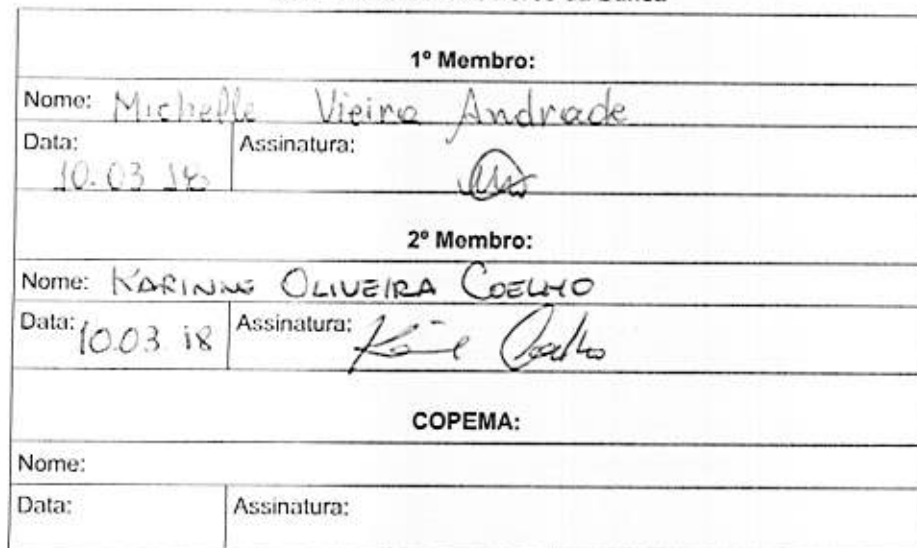 1º Membro:
Nome: Michelle Vieira Andrade
Data: Assinatura:
10.03 18
2º Membro:
Nome: KARINNE OLIVEIRA COELHO
Data: 10.03 18 Assinatura: Coelho
COPEMA:
Nome:
Data: Assinatura: